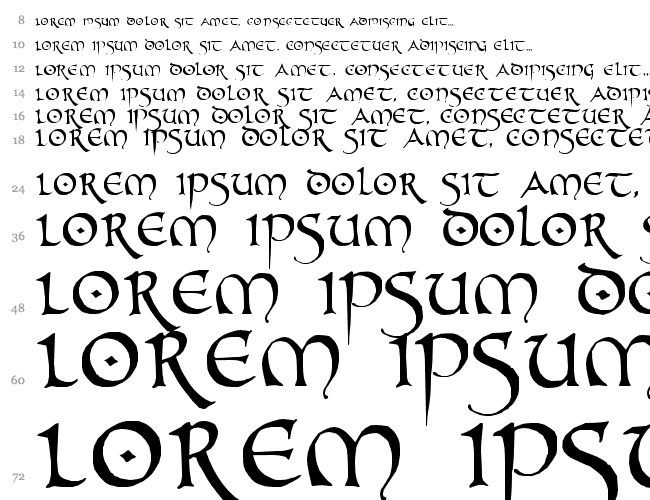 8 Lorem ipsum dolor sit amet, consectetuer adipiscing elit...
10 Lorem ipsum dolor sit amet, consectetuer adipiscing elit...
12 Lorem ipsum dolor sit amet, consectetuer adipiscing elit...
14 Lorem ipsum dolor sit amet, consectetuer adipis
16 Lorem ipsum dolor sit amet, consectetuer a
18 Lorem ipsum dolor sit amet, consectet
24 Lorem ipsum dolor sit amet,
36 Lorem ipsum dolor s
48 Lorem ipsum do
60 Lorem ipsum
72 Lorem ipsu